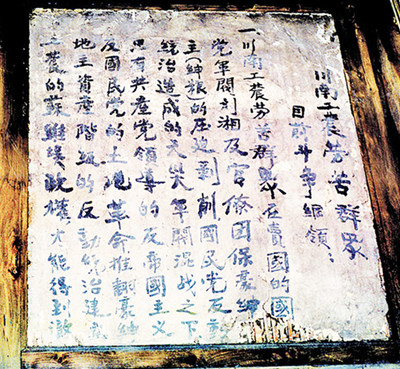 川南工農劳苦群眾
目前斗争綱領：
一川南工農劳苦群眾在賣國的國
党軍閥刘湘及官僚团保豪紳
主(紳粮)的压迫剥削國民党反動
統治造成的天災軍閥混战之下
只有共產党領導的反帝國主义
反國民党的土地革命推翻豪紳
地主資產階級的反動統治建立
工農的蘇維埃政權才能得到澈